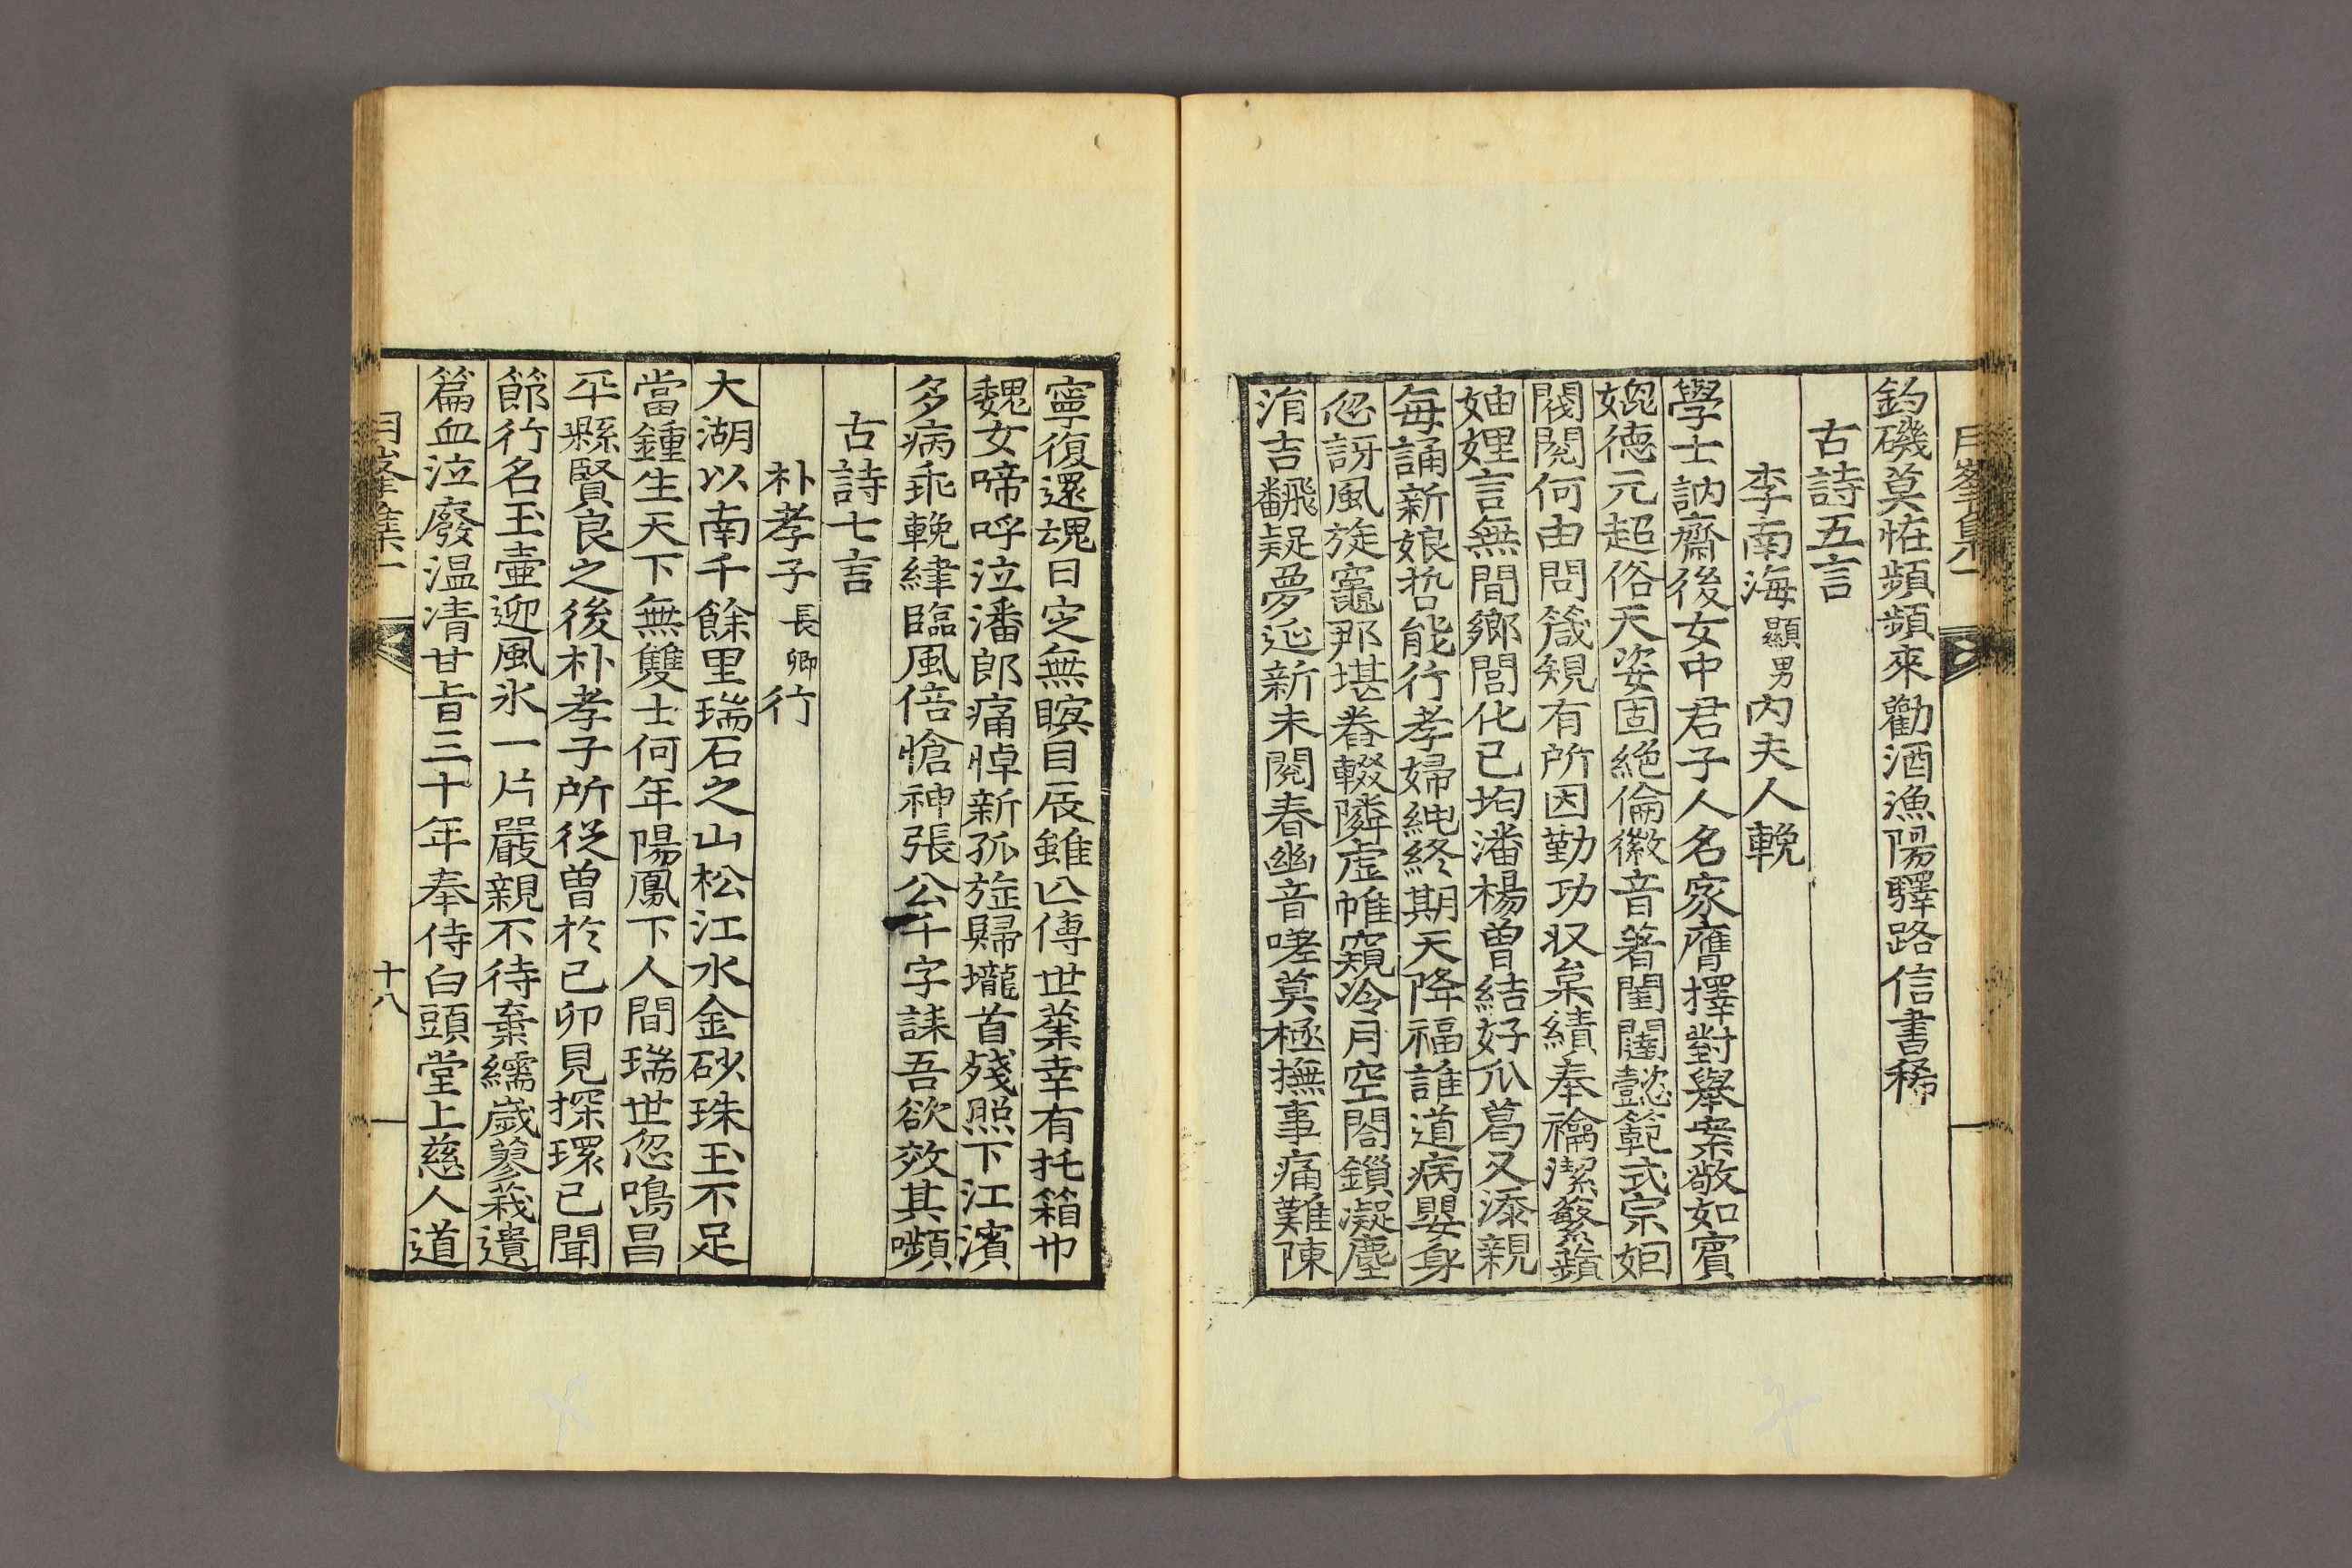 釣磯莫恠頻頻來勸酒漁陽驛路信書稀
古詩五言
李南海顯男內夫人輓
學士訥齋後女中君子人名家膺擇對舉案敬如賓
媲德元超俗天姿固絶倫徽音著閨閫懿範式宗姻
閥閱何由問箴規有所因勤功収枲績奉禴潔蘩蘋
妯娌言無間鄕閭化已均潘楊曾結好瓜葛又添親
每誦新娘哲能行孝婦純終期天降福誰道病嬰身
忽訝風旋竈那堪舂輟隣虛帷窺冷月空閤鎖凝塵
涓吉飜疑夢延新未閱春幽音嗟莫極撫事痛難陳
寧復還魂日定無瞑目辰雖亾傳世業幸有托箱巾
魏女啼呼泣潘郎痛悼新孤旌歸壠首殘照下江濱
多病乖輓綍臨風倍愴神張公千字誄吾欲效其嚬
古詩七言
朴孝子長卿行
大湖以南千餘里瑞石之山松江水金砂珠玉不足
當鍾生天下無雙士何年陽鳳下人間瑞世忽鳴昌
平縣賢良之後朴孝子所從曾於己卯見探環已聞
節行名玉壷迎風氷一片嚴親不待棄繻歲蓼莪遺
篇血泣廢温凊甘旨三十年奉侍白頭堂上慈人道
月峯集一
十八